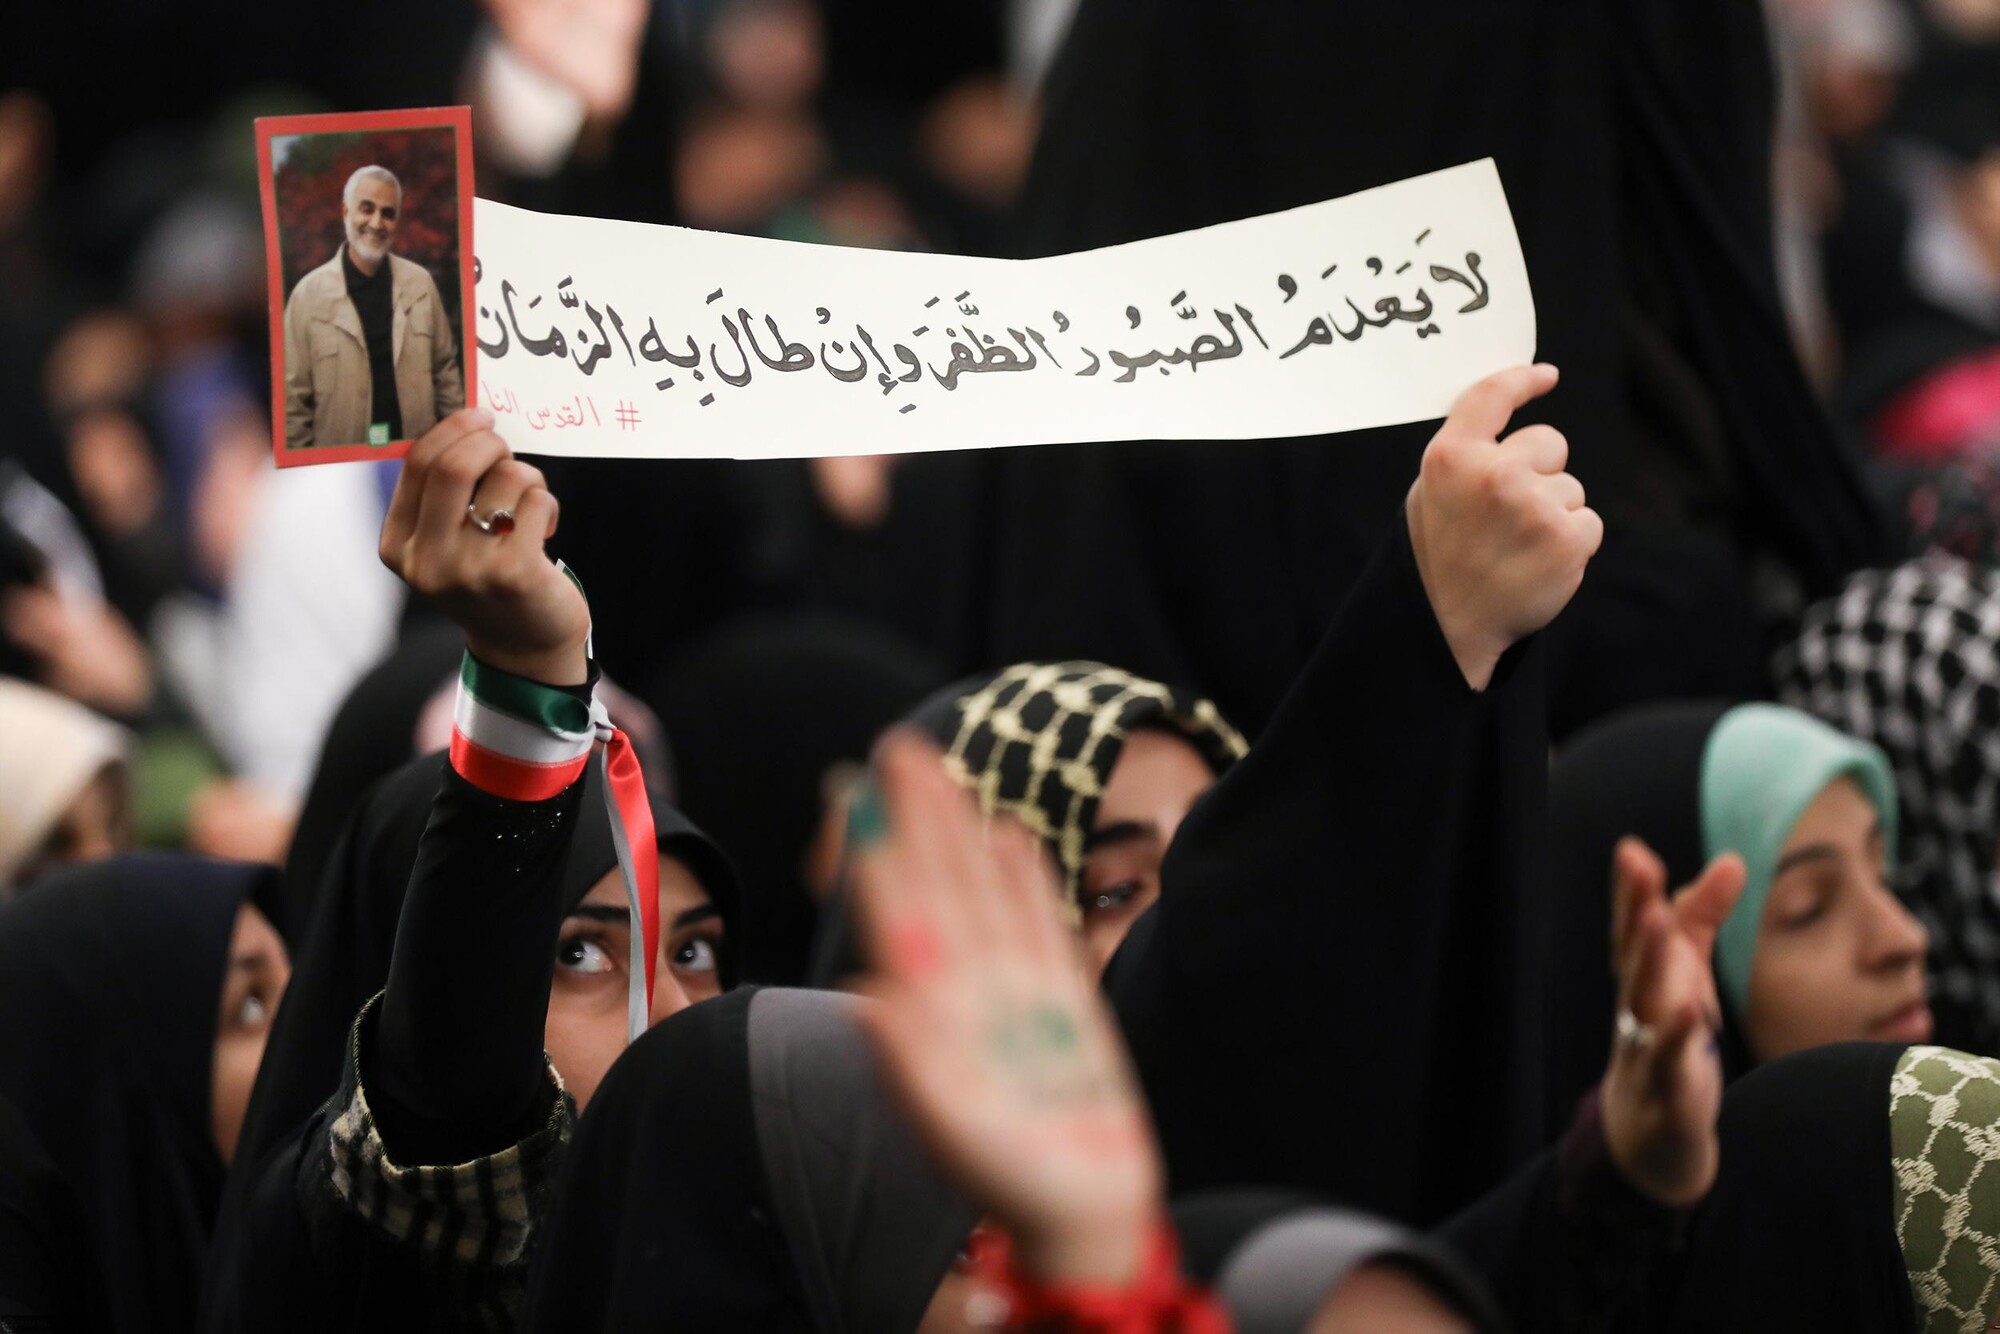 لَا يَعْدَمُ الصَّبُورُ الظَّفَرَ وَإِنْ طَالَ بِهِ الزَّمَانُ
# القدس